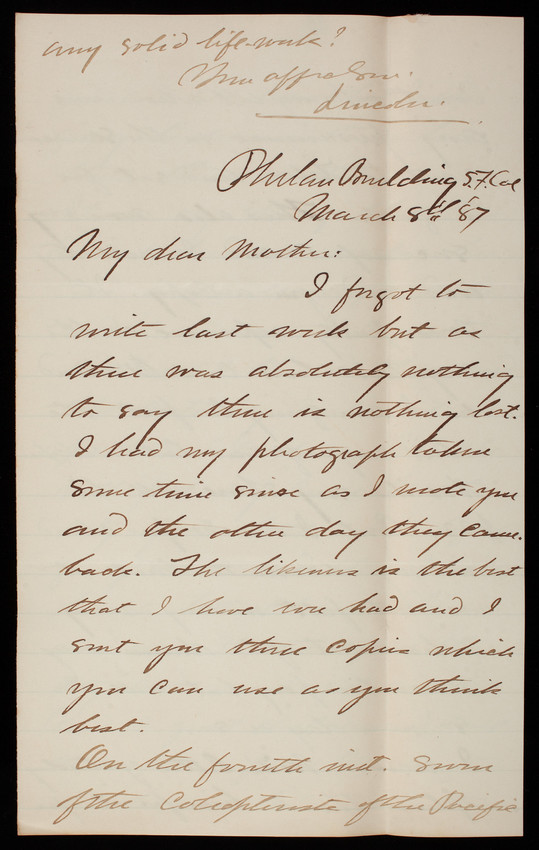 any solid life-work?
Your affec Son.
Lincoln.
Phelan Building S.F. Cal
March 8th '87
My dear Mother:
I forgot to
write last week but as
there was absolutely nothing
to say there is nothing lost.
I had my photograph taken
some time since as I wrote you
and the other day they came
back. The likeness is the best
that I have ever had and I
sent you three copies which
you can use as you think
best.
On the fourth inst. some
of the Coleopterists of the Pacific